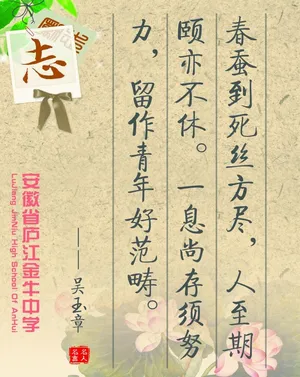 春蚕到死丝方尽，人至期
颐亦不休。一息尚存须努
力，留作青年好范畴。
——吴玉章
志
安徽省庐江金牛中学
LuJiang JinNiu High School Of AnHui
名人
名言